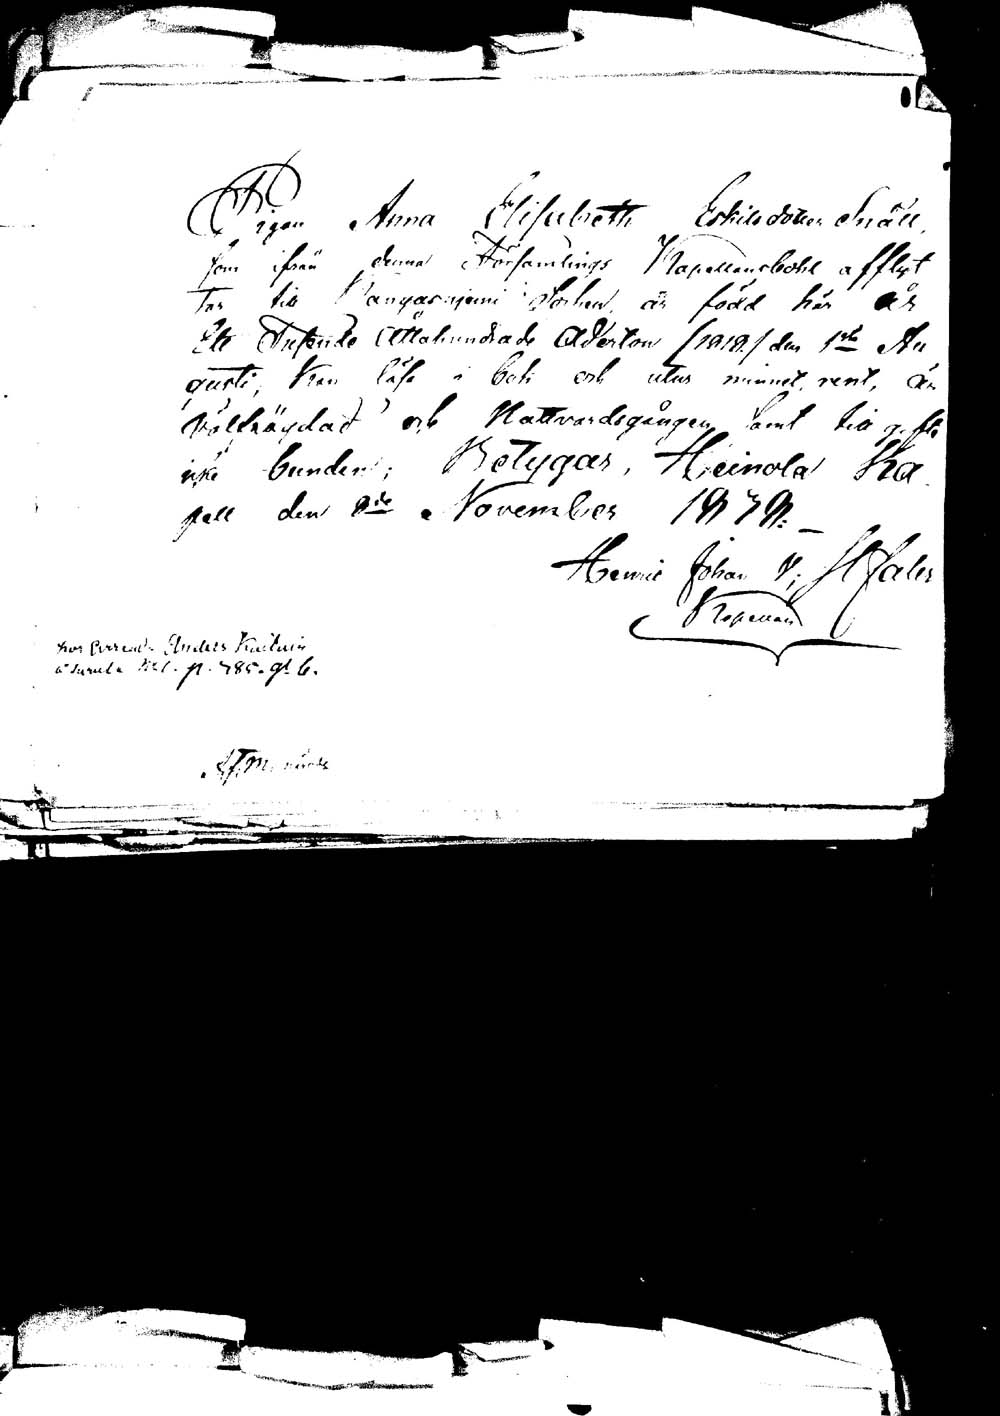 Pigan Anna Elisabeth Eskilsdotter Snäll,
som ifrån denna Församlings Kapellansbohl afflyt
tar till Kangasniemi Sochn, är född här år
Ett Tusende Ottahundrade Aderton (1818.) den 1ste Au
gusti, kan läsa i bok och utur minnet, rent, är
välfrägdad och Nattvardsgången samt till gifte
icke bunden; Betygar, Heinola Ka
pell den 8de November 1838.
Henric Johan
Kapellan
hos Anders
p. 785.